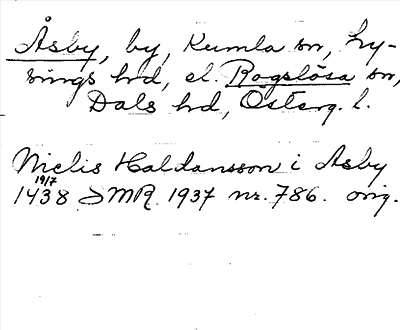 Åsby, by, Kumla sn, Ly-
sings hd, el. Rogslösa sn,
Dals hd, Österg. l.
Niclis Haldansson i Asby
19/7
1438 SMR 1937 nr. 786. orig.